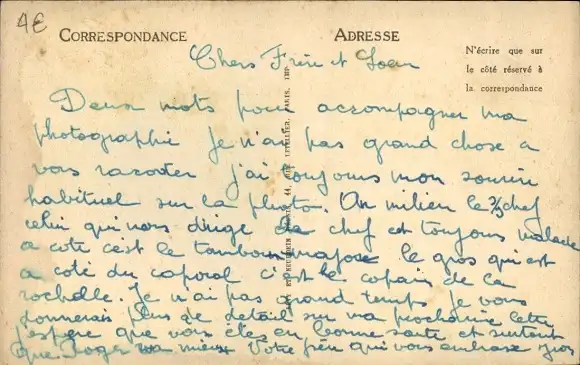 4€
CORRESPONDANCE
ADRESSE
N'écrire que sur
le côté réservé à
la correspondance
Chers Frère et Soeur
Deux mots pour accompagner ma
photographie Je n'ai pas grand chose a
vous raconter j'ai toujours mon sourire
habituel sur la photo. Au milieu le chef
celui qui nous dirige le chef est toujours malade
a coté c'est le tambour major le gros qui est
a coté du caporal c'est le copain de la
rochelle. Je n'ai pas grand temps je vous
donnerais plus de detail sur ma prochaine lettre
espere que vous êtes en bonne santé et surtout
que Roger va mieux Votre frère qui vous embrasse
44, RUE LETELLIER, PARIS. IMP.